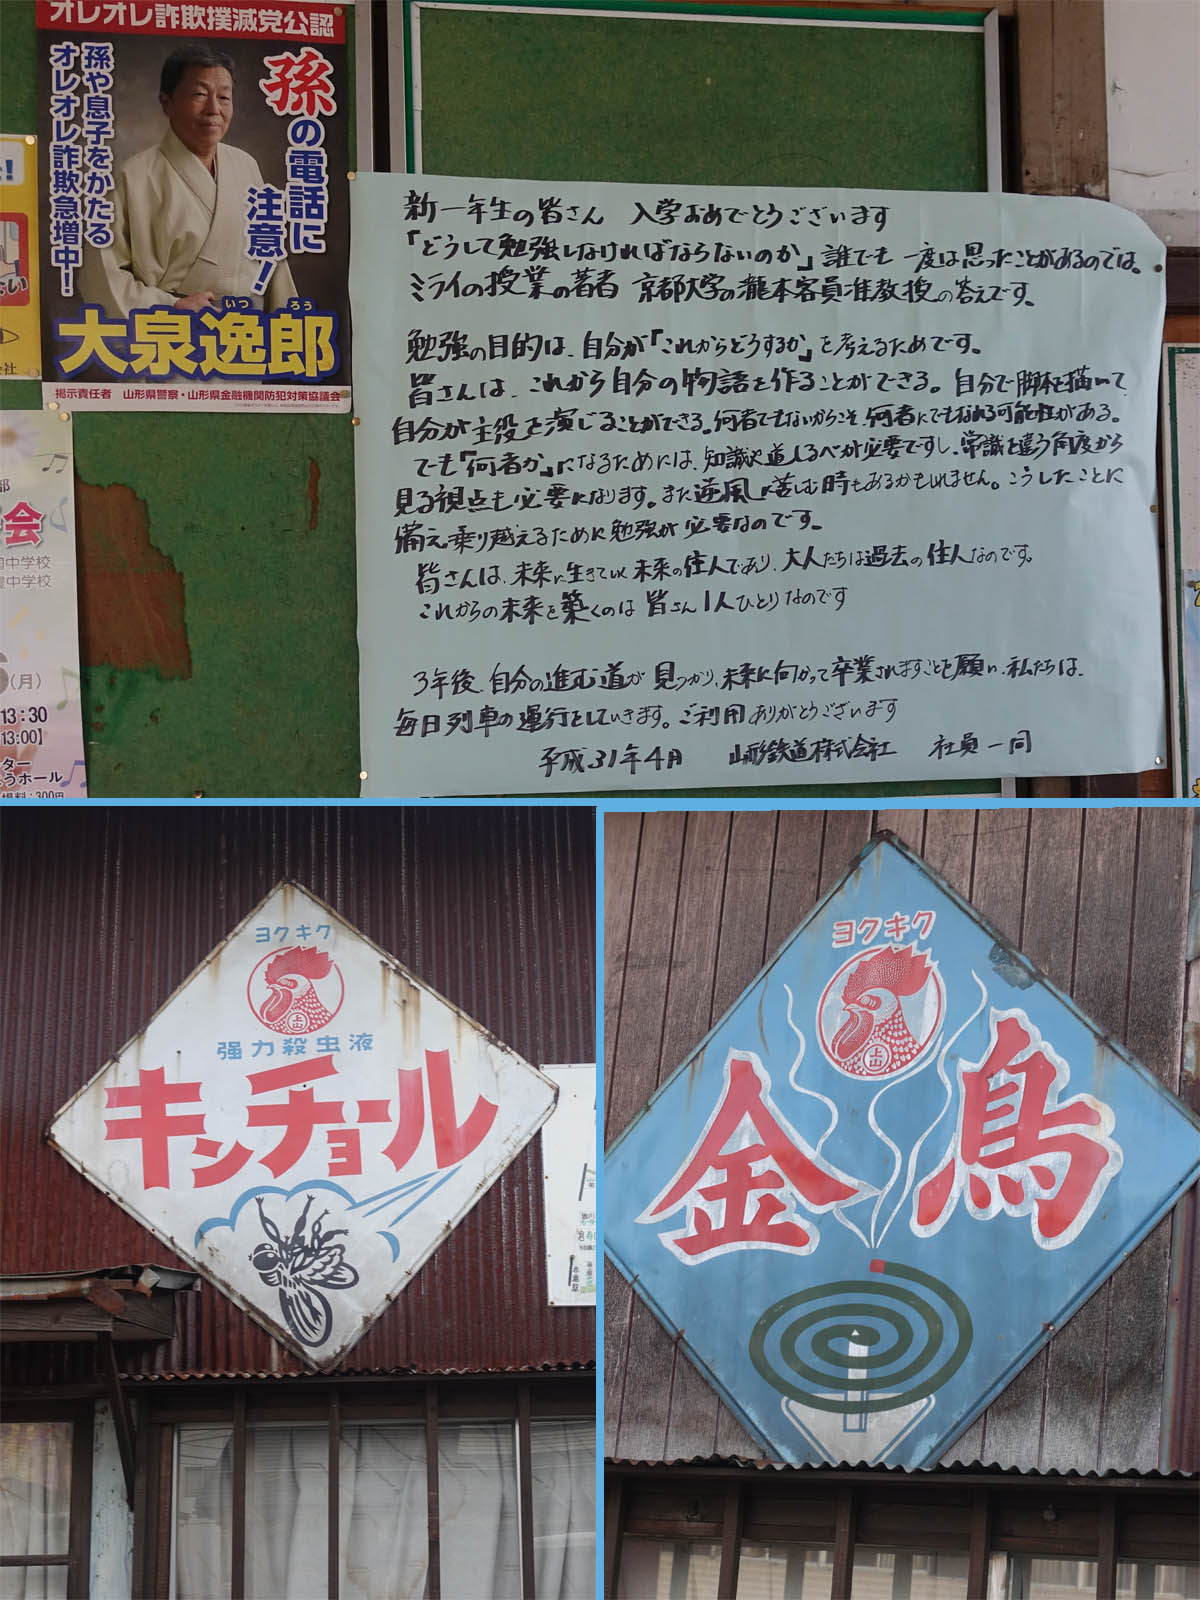 オレオレ詐欺撲滅党公認
孫の電話に
注意！
孫や息子をかたる
オレオレ詐欺急増中！
いつ ろう
大泉逸郎
掲示責任者 山形県警察・山形県金融機関防犯対策協議会
新一年生の皆さん 入学おめでとうございます
「どうして勉強しなければならないのか」誰でも 一度は思ったことがあるのでは。
ミライの授業の著者 京都大学の瀧本客員准教授の答えです。
勉強の目的は、自分が「これからどうするか」を考えるためです。
皆さんは、これから自分の物語を作ることができる。自分で脚本を描いて、
自分が主役を演じることができる。何者でもないからこそ、何者にでもなれる可能性がある。
でも「何者か」になるためには、知識や道しるべが必要ですし、常識と違う角度から
見る視点も必要になります。また逆風に苦しむ時もあるかもしれません。こうしたことに
備え、乗り越えるために勉強が必要なのです。
皆さんは、未来に生きていく未来の住人であり、大人たちは過去の住人なのです。
これからの未来を築くのは皆さん1人ひとりなのです
3年後、自分の進む道が見つかり、未来に向かって卒業されますことを願い、私たちは、
毎日列車の運行をしていきます。ご利用ありがとうございます
平成31年4月 山形鉄道株式会社 社員一同
会
中学校
中学校
(月)
13:30
13:00】
ター
うホール
300円
ヨクキク
上山
强力殺虫液
キンチョール
ヨクキク
上山
金鳥